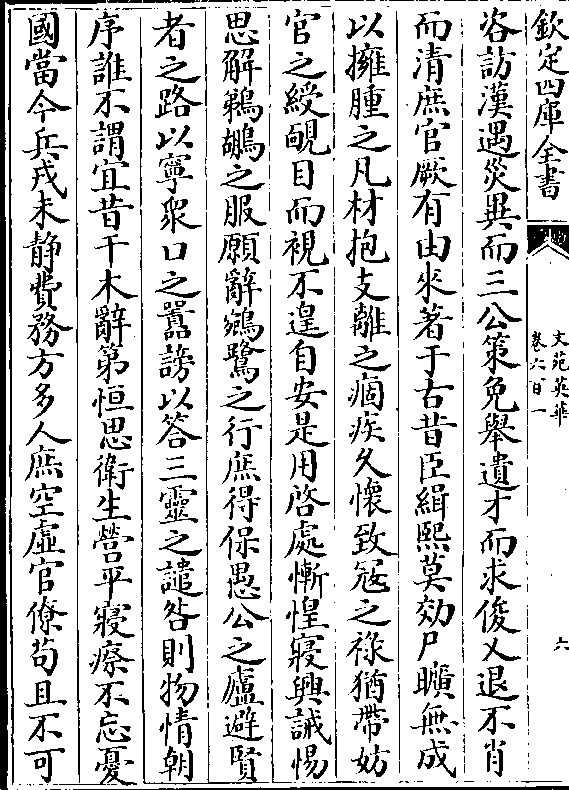 欽定四庫全書
文苑英華
卷六百一
六
咨訪漢遇災異而三公策免舉遺才而求俊乂退不肖
而清庶官厥有由來著于古昔臣緝熙莫効尸曠無成
以擁腫之凡材抱支離之痼疾久懷致寇之祿猶帶妨
官之綬覥目而視不遑自安是用啓處慚惶寢興誡惕
思解鵜鶘之服願辭鵷鷺之行庶得保愚公之廬避賢
者之路以寧衆口之囂謗以答三靈之譴咎則物情朝
序誰不謂宜昔干木辭第恒思衛生營平寢瘵不忘憂
國當今兵戎未静費務方多人庶空虛官僚苟且不可